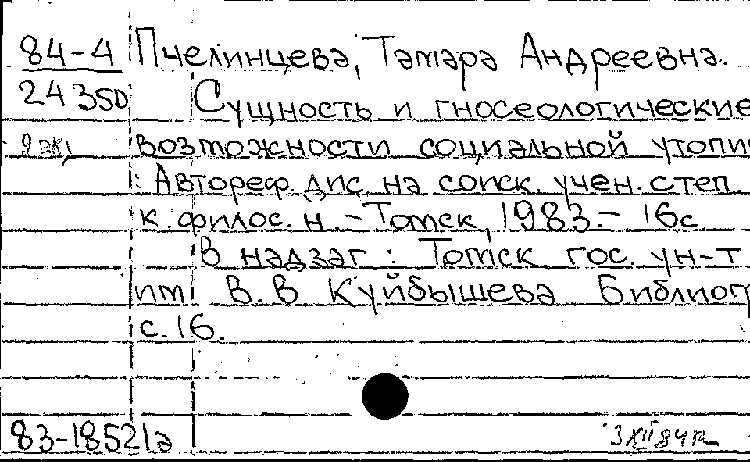 84-4 Пчелинцева, Тамара Андреевна.
24350 Сущность и гносеологические
2 эк, возможности социальной утопи
: Автореф. дис. на соиск. учен. степ
к. филос. н. - Томск, 1983. - 16с
В надзаг : Томск гос. ун-т
им В. В Куйбышева Библиог
с. 16.
83-18521а 3 XII 84 г